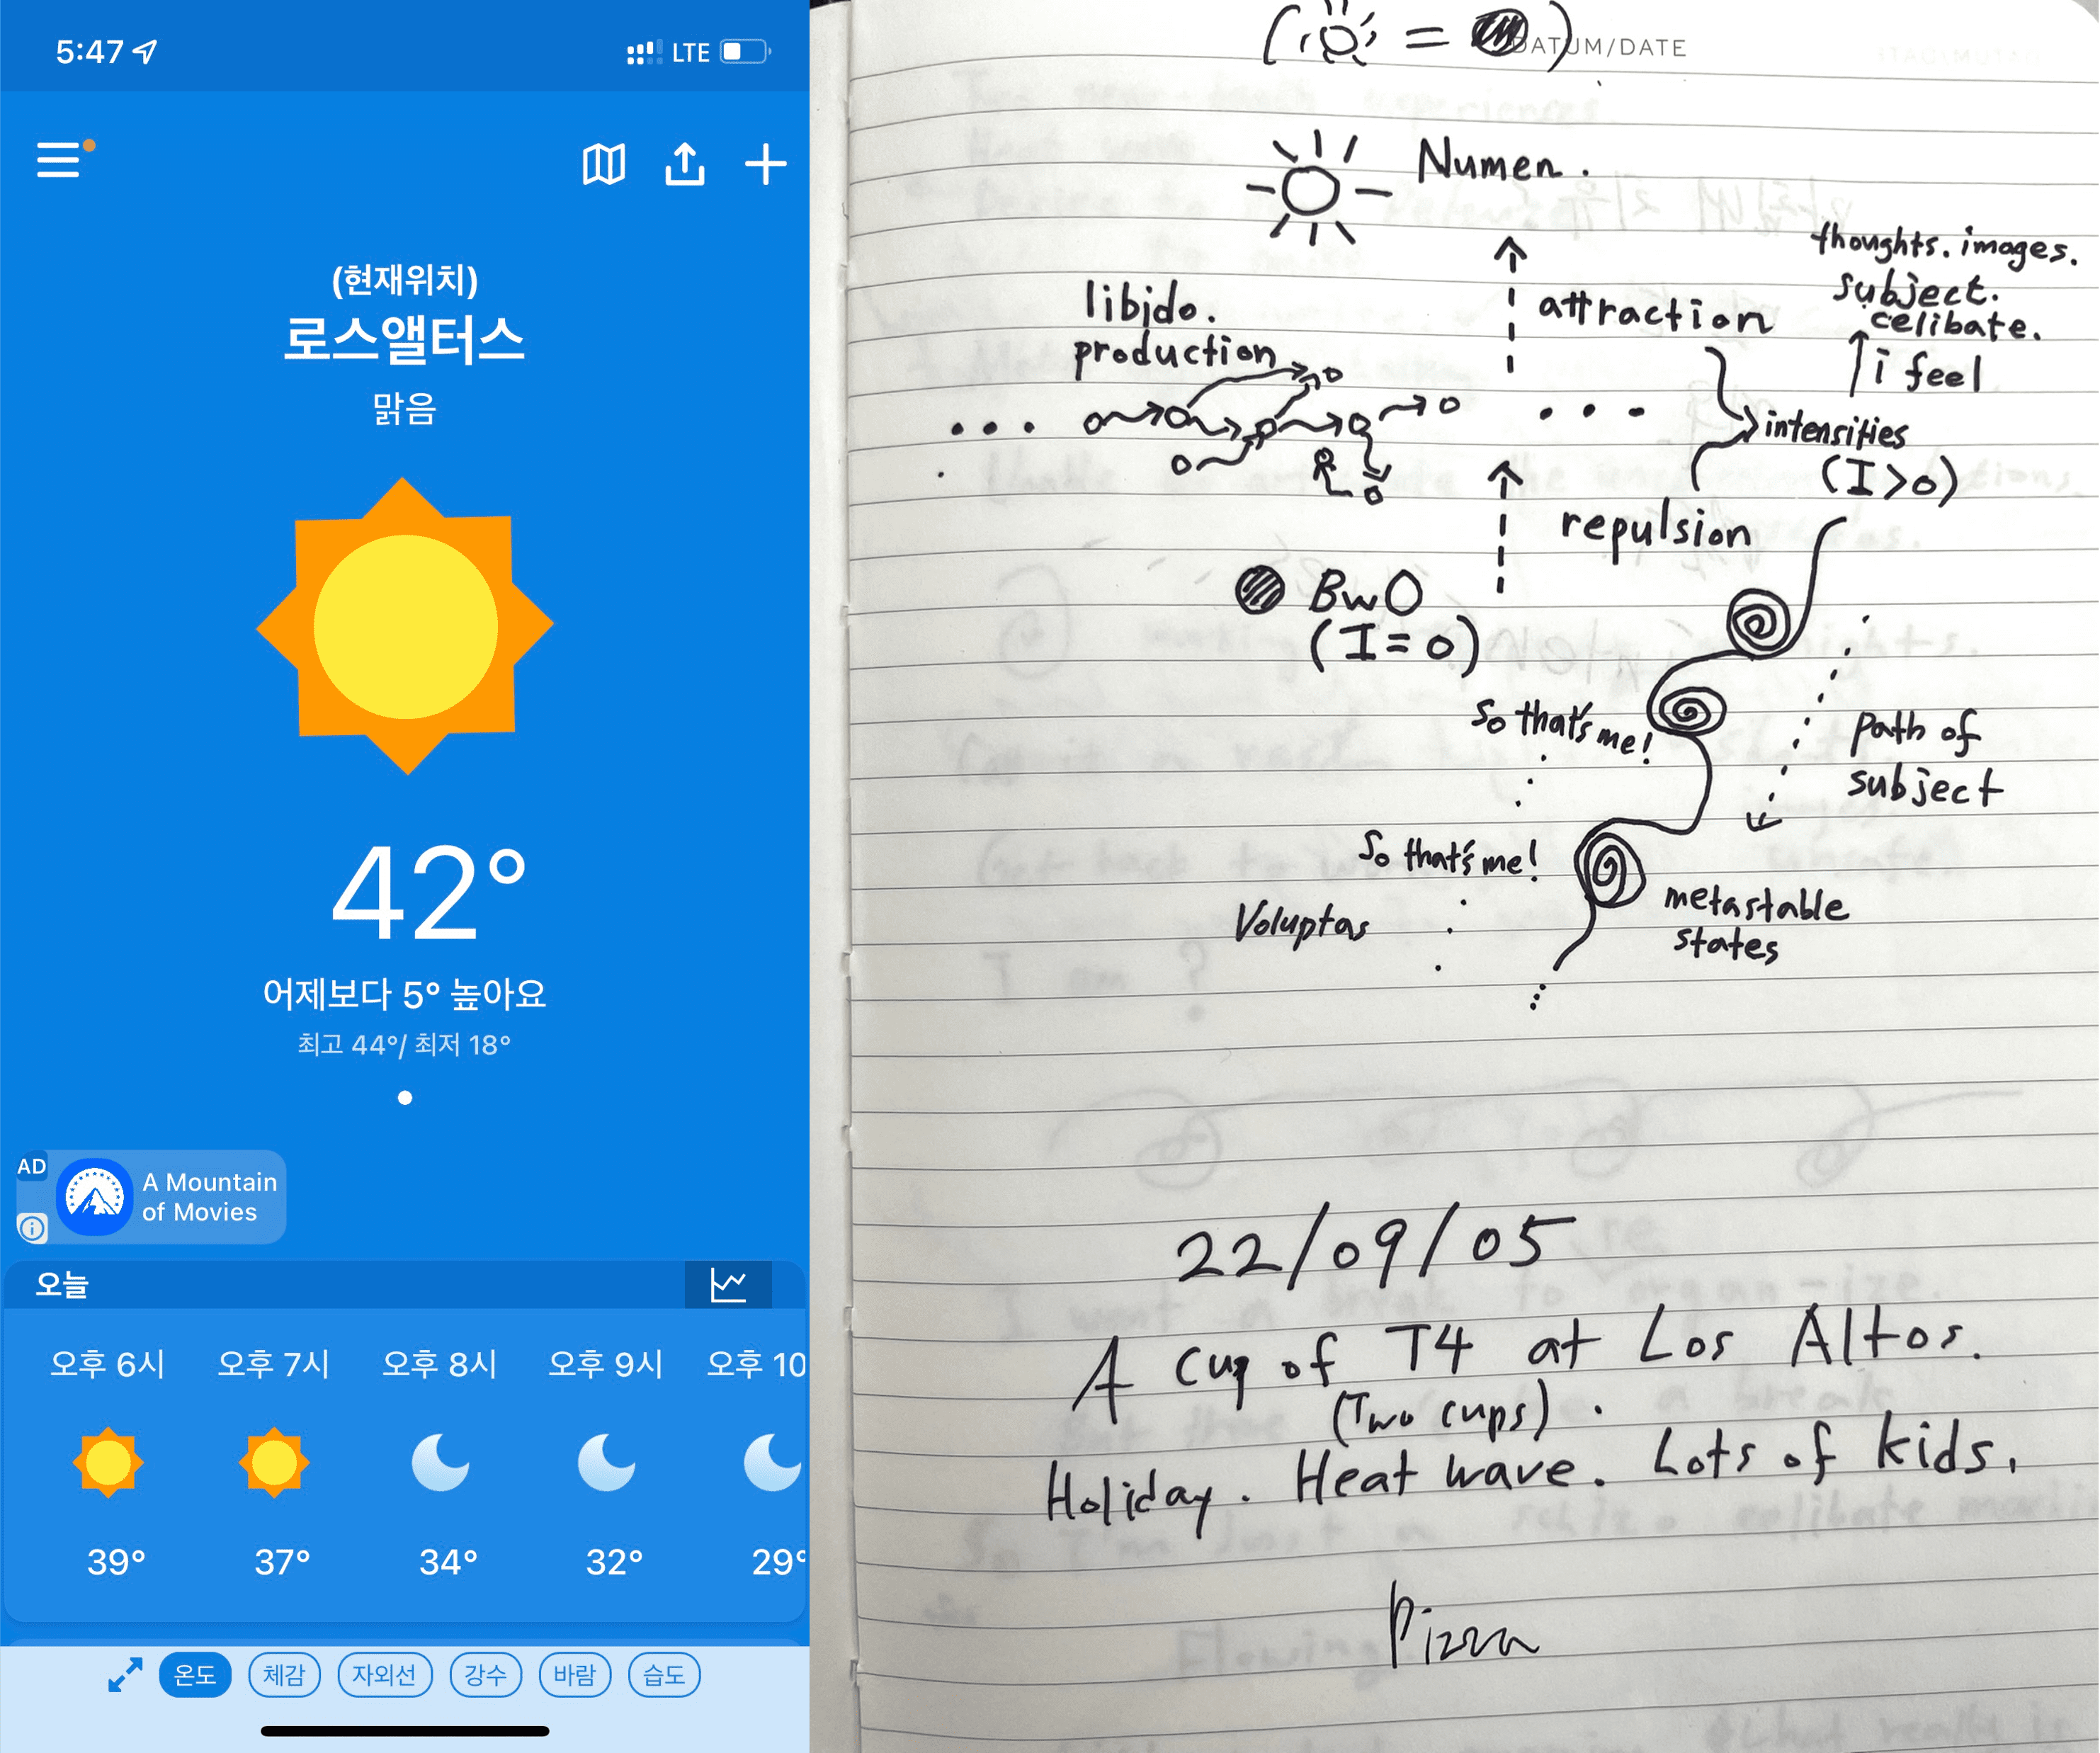 5:47
LTE
(현재위치)
로스앨터스
맑음
42°
어제보다 5° 높아요
최고 44°/ 최저 18°
AD
A Mountain
of Movies
오늘
오후 6시 오후 7시 오후 8시 오후 9시 오후 10
39° 37° 34° 32° 29°
온도 체감 자외선 강수 바람 습도
( = )
DATUM/DATE
Numen.
thoughts. images.
subject.
celibate.
i feel
libido.
production
attraction
intensities
(I>0)
repulsion
BwO
(I=0)
So that's me!
path of
subject
So that's me!
Voluptas
metastable
states
22/09/05
A cup of T4 at Los Altos.
(Two cups).
Holiday. Heat wave. Lots of kids.